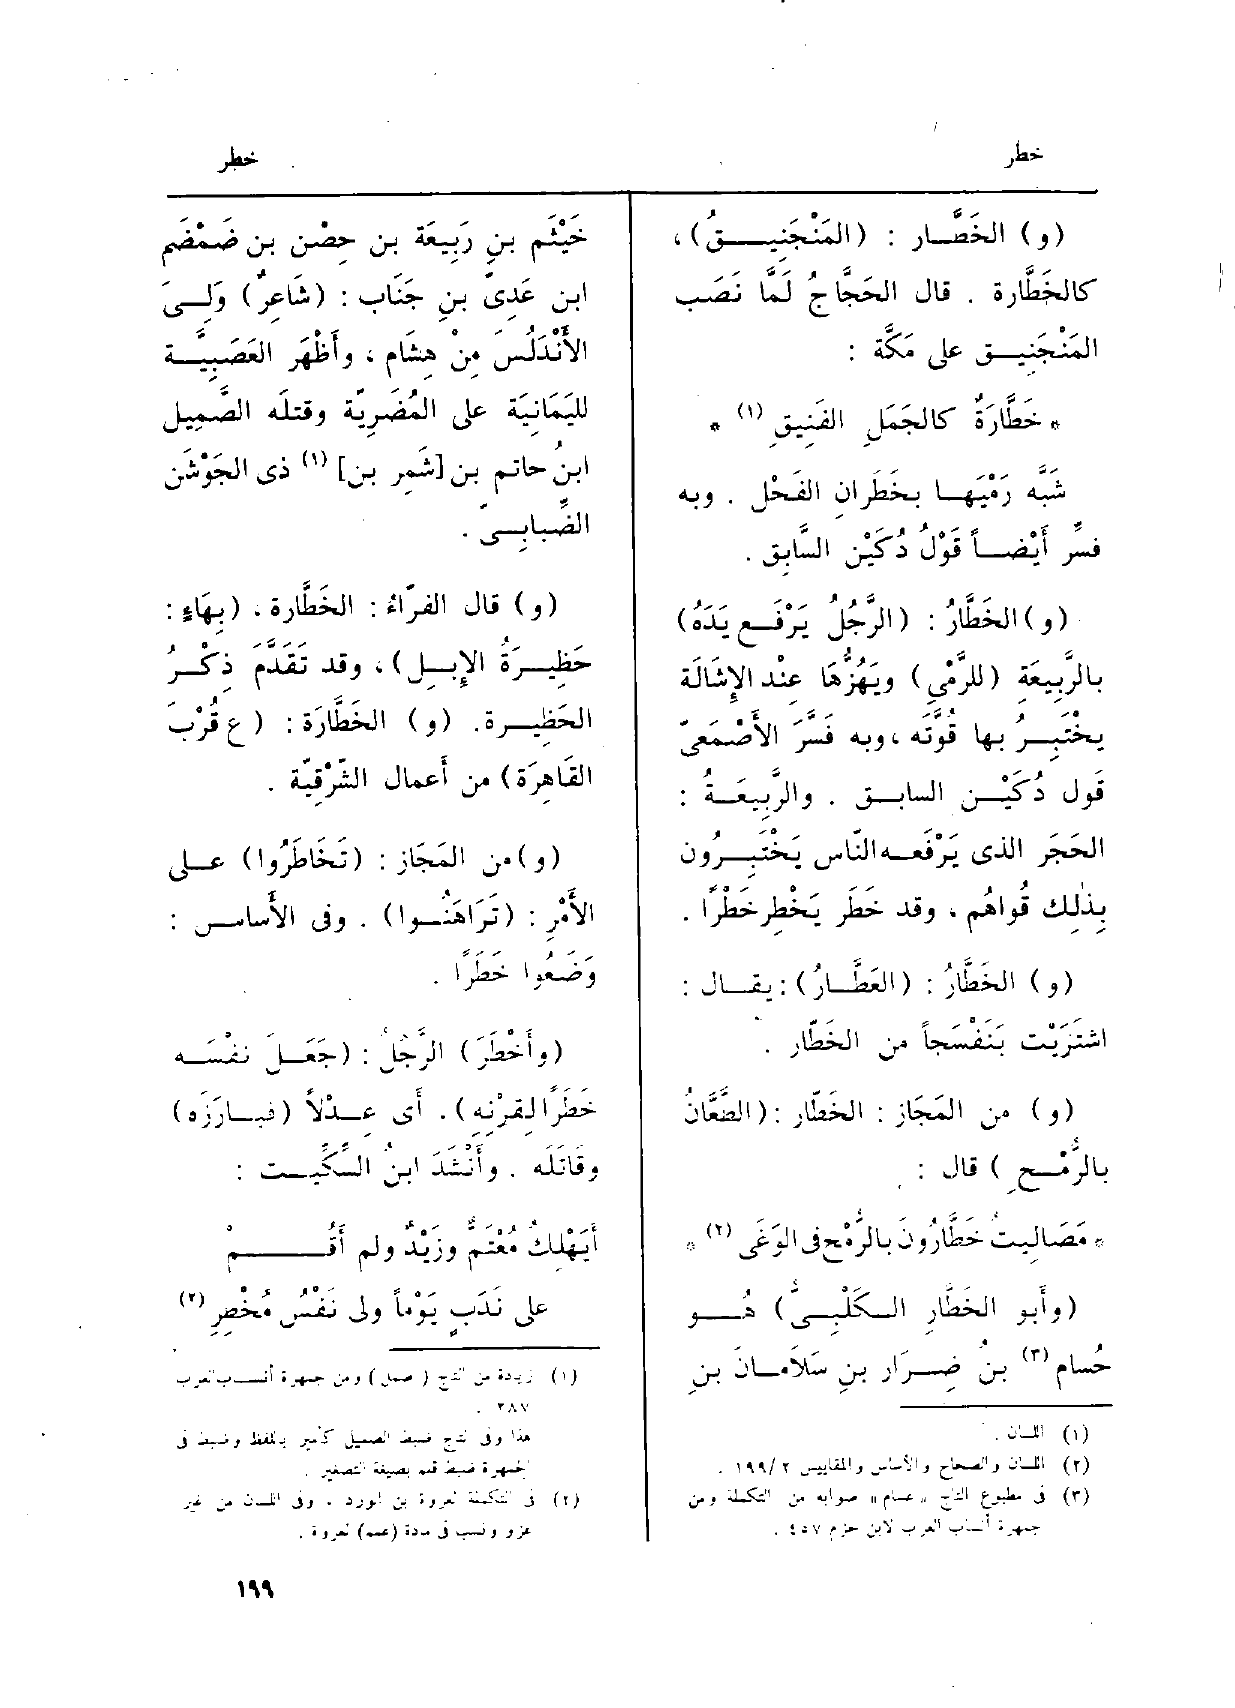 خطر
خطر
(و) الخَطَّــار : (المَنْجَنِيــقُ) ،
كالخَطَّارة . قال الحَجَّاجُ لَمَّا نَصَب
المَنْجَنِيــق على مَكَّة :
* خَطَّارَةٌ كالجَمَلِ الفَنِيقِ (١) *
شَبَّه رَمْيَهــا بخَطَرانِ الفَحْل . وبه
فسِّر أَيْضــاً قَوْلُ دُكَيْن السَّابِق .
(و) الخَطَّارُ : (الرَّجُلُ يَرْفَــع يَدَهُ)
بالرَّبِيعَة (للرَّمْيِ) ويَهُزُّهَا عِنْد الإِشَالَة
يخْتَبِــرُ بها قُوَّتَه ، وبه فَسَّرَ الأَصْمَعيّ
قَول دُكَيْــن السابــق . والرَّبِيعَــةُ :
الحَجَر الذى يَرْفَعــه النّاس يَخْتَبِــرُون
بِذٰلِك قُواهُم ، وقد خَطَر يَخْطِر خَطْرًا .
(و) الخَطَّارُ : (العَطَّــارُ) : يقــال :
اشتَرَيْت بَنَفْسَجاً من الخَطّار .
(و) من المَجَاز : الخَطّار : (الطَّعَّانُ
بالرُّمْــح ) قال :
* مَصَالِيتُ خَطَّارُونَ بالرُّمْحِ فى الوَغَى (٢) *
(وأَبو الخَطَّارِ الــكَلْبِــىُّ) هُــو
حُسام (٣) بنُ ضِــرَار بنِ سَلَامــانَ بنِ
(١) اللسان .
(٢) اللسان والصحاح والأساس والمقاييس ٢ /١٩٩ .
(٣) فى مطبوع التاج «عسام» صوابه من التكملة ومن
جمهرة أنساب العرب لابن حزم ٤٥٧ .
خَيْثَم بنِ رَبِيعَة بن حِصْن بن ضَمْضَم
ابن عَدِىّ بنِ جَنَاب : (شَاعِرٌ) وَلِــىَ
الأَنْدَلُسَ مِنْ هِشَام ، وأَظْهَر العَصَبِيَّــة
لليَمَانِيَة على المُضَرِيّة وقتلَه الصَّمِيل
ابنُ حاتم بن [شَمِر بن] (١) ذى الجَوْشَن
الضِّبابِــىّ .
(و) قال الفَرّاءُ : الخَطَّارة ، (بِهَاءٍ :
حَظِيــرَةُ الإِبِــل) ، وقد تَقَدَّمَ ذِكْــرُ
الحَظِيــرة. (و) الخَطَّارَة : ( ع قُرْبَ
القَاهِرَة) من أَعمال الشّرْقِيّة .
(و) من المَجَاز : (تَخَاطَرُوا) عــلى
الأَمْرِ : (تَرَاهَنُــوا) . وفى الأَساس :
وَضَعُوا خَطَرًا .
(وأَخْطَرَ) الرَّجُلُ : (جَعَــلَ نفْسَــه
خَطَرًا لقِرْنِه) . أَى عِــدْلاً (فبــارَزَه)
وقاتَلَه . وأَنْشَدَ ابنُ السِّكِّيــت :
أَيَهْلِكُ مُعْتَمٌّ وزَيْدٌ ولم أَقُــمْ
على نَدَبٍ يَوْماً ولى نَفْسُ مُخْطِرِ (٢)
(١) زيادة من التاج (صمل) ومن جمهرة أنساب العرب
٢٨٧ .
هذا وفى التاج ضبط الصميل كأمير باللفظ وضبط فى
الجمهرة ضبط قلم بصيغة التصغير .
(٢) فى التكملة لعروة بن الورد . وفى اللسان من غير
عزو ونسب فى مادة (عمم) لعروة .
١٩٩